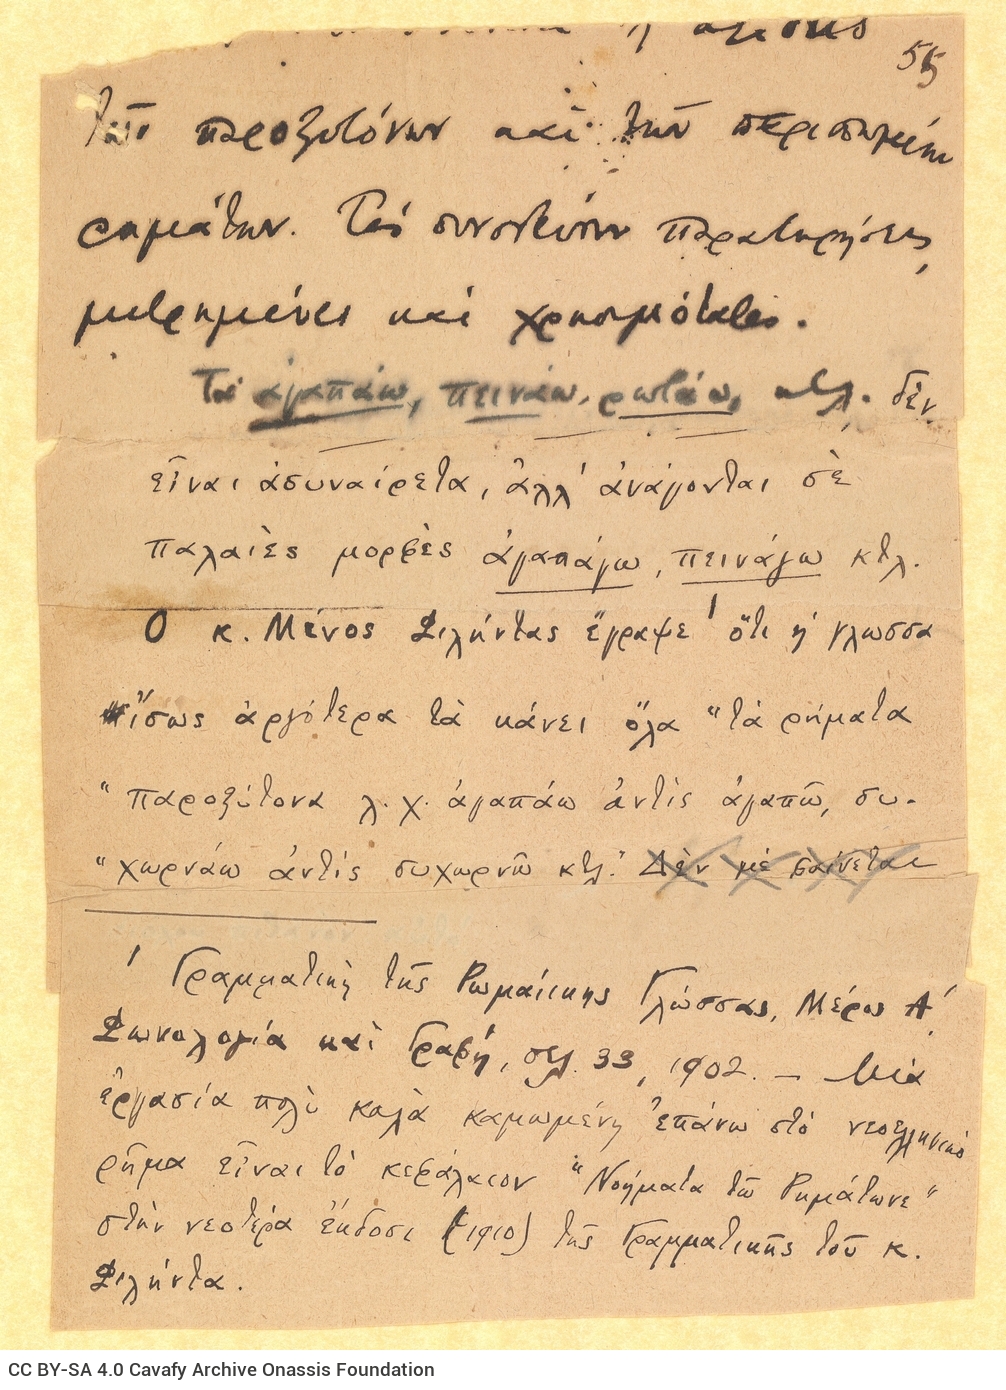 55
τῶν παροξυτόνων καὶ τῶν περισπωμένων
ρημάτων. Τὲς συνιστῶσιν παρατηρήσεις
μετρημένες καὶ χρησιμότατες.
Τὰ ἀγαπάω, πεινάω, ρωτάω, κτλ. δὲν
εἶναι ἀσυναίρετα, ἀλλ' ἀνάγονται σὲ
παλαιὲς μορφὲς ἀγαπάγω, πεινάγω κτλ.
Ὁ κ. Μένος Φιλήντας ἔγραψε¹ ὅτι ἡ γλωσσα
"ἴσως ἀργότερα τὰ κάνει ὅλα "τὰ ρήματα
"παροξύτονα λ.χ. ἀγαπάω ἀντὶς ἀγαπῶ, συ-
"χωρνάω ἀντὶς συχωρνῶ κτλ." Δὲν μὲ φαίνεται
¹ Γραμματικὴ τῆς Ρωμαίικης Γλώσσας, Μέρος Α΄,
Φωνολογία καὶ Γραφή, σελ. 33, 1902. — Μιὰ
ἐργασία πολὺ καλὰ καμωμένη ἐπάνω στὸ νεοελληνικὸ
ρῆμα εἶναι τὸ κεφάλαιον "Νοήματα τῶ Ρημάτωνε"
στὴν νεοτέρα ἔκδοσι (1910) τῆς Γραμματικῆς τοῦ κ.
Φιλήντα.
CC BY-SA 4.0 Cavafy Archive Onassis Foundation